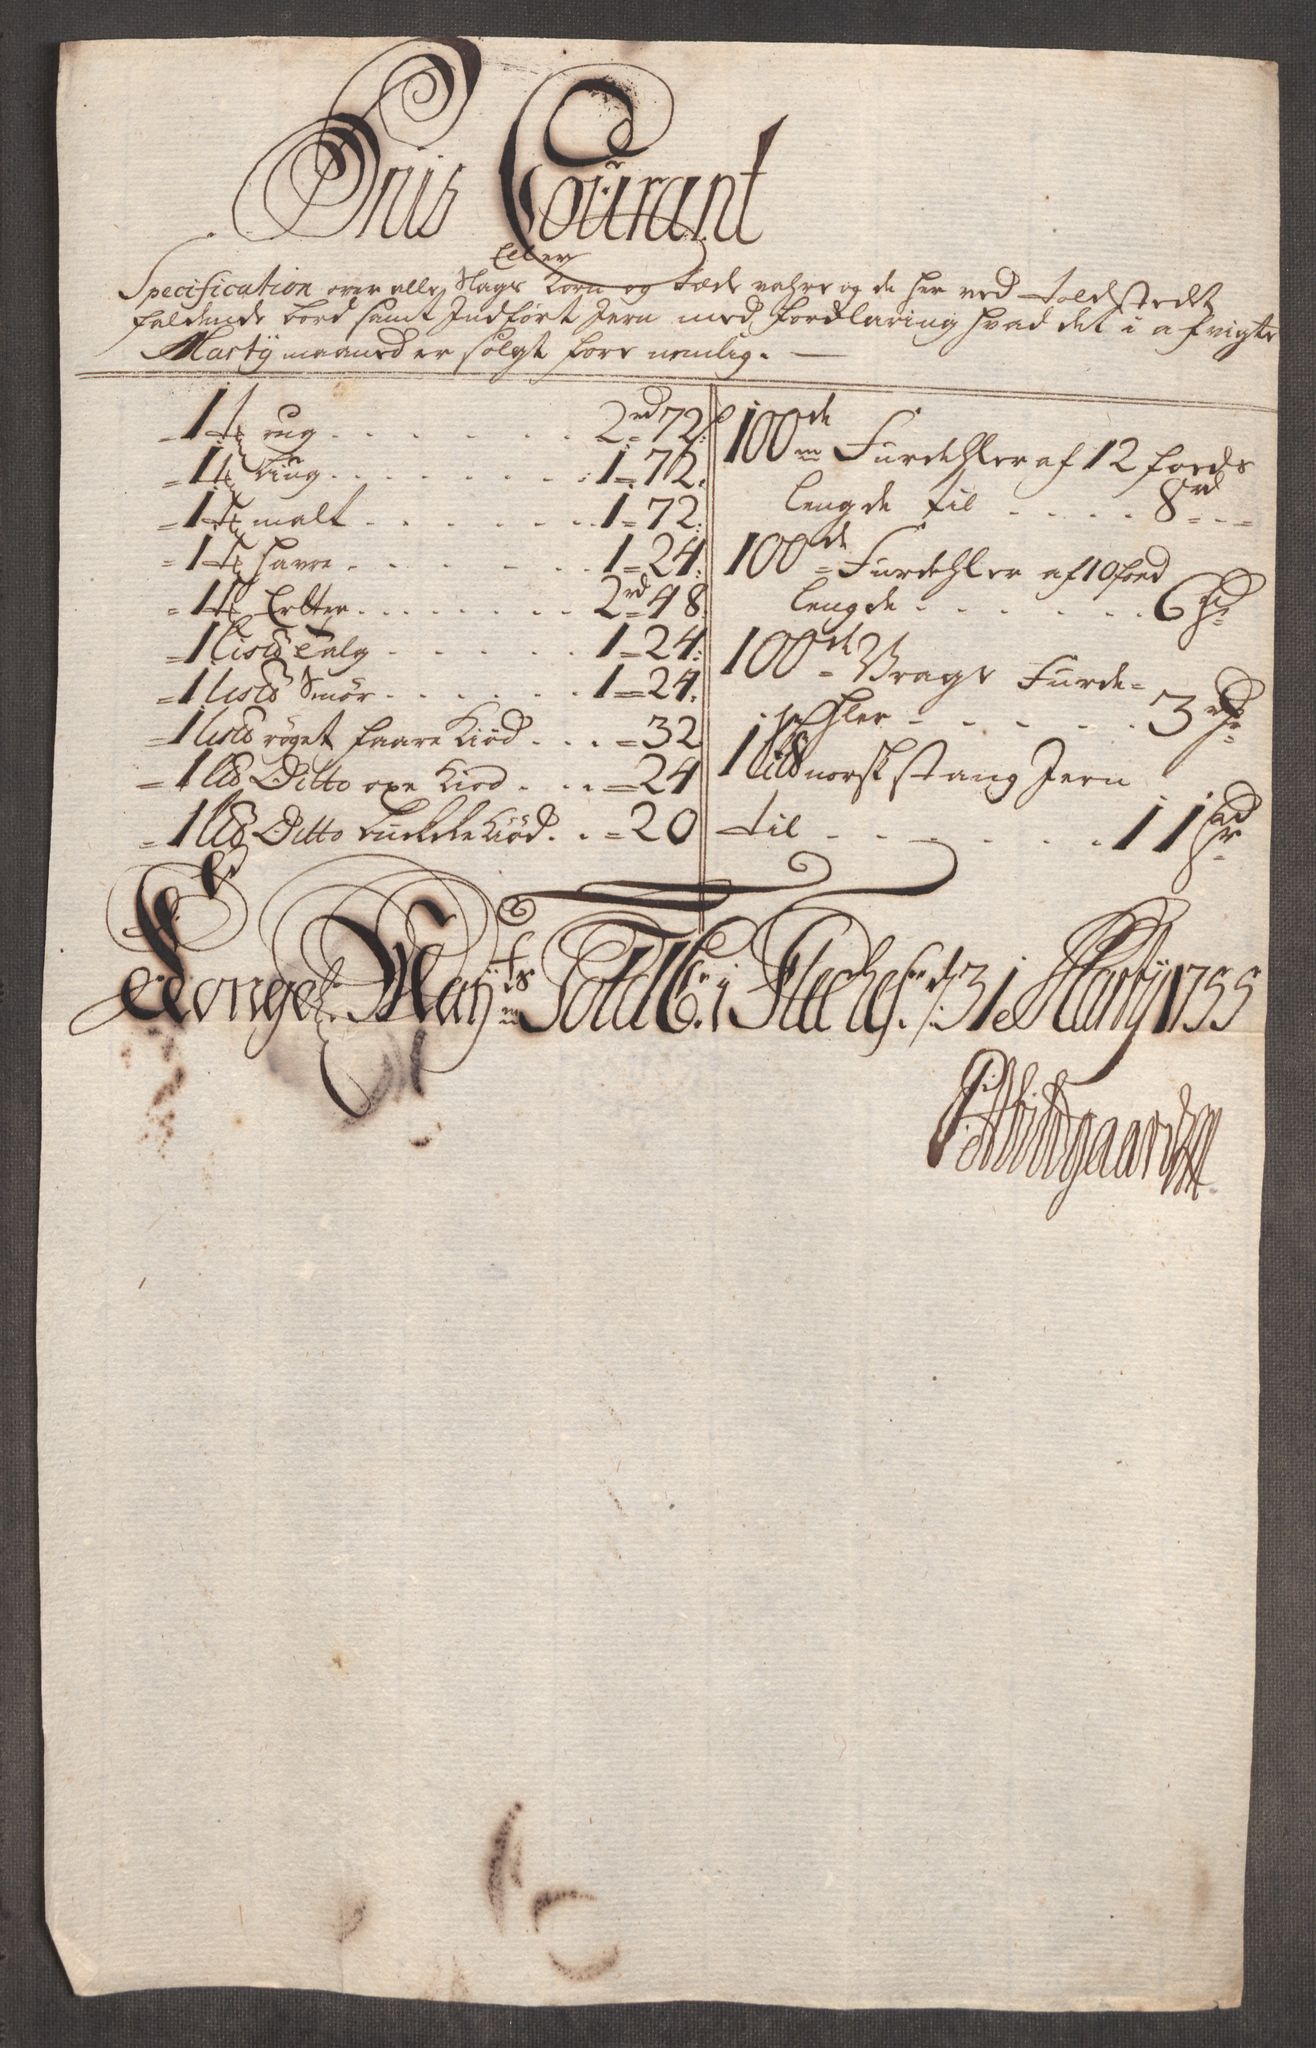 Pris Courant
Eller
Specification over alle Slags Korn og Fæde vahre og de her ved toldstedet
faldende bord samt Indført Jern med forklaring hvad det i afvigte
Martij maaned er solgt for nemlig.
1 t rug 2rd 72
1 t biüg 1 = 72
1 t malt 1 = 72
1 t havre 1 = 24
1 t Erter 2rd 48
1 lis℔ talg 1 = 24
1 lis℔ Smør 1 = 24
1 lis℔ røget faare kiød 32
1 l℔ Ditto oxe kiød 24
1 l℔ Ditto buckke kiød 20
100de Furdehler af 12 foeds
lengde til 8rd
100de Furdehler af 10 foed
lengde 6rd
100de Vrage Furde-
hler 3rd
1 norsk stang Jern
til 11
Konge Mayts Told C. i Fleche d. 31 Martij 1755
P Abildgaard